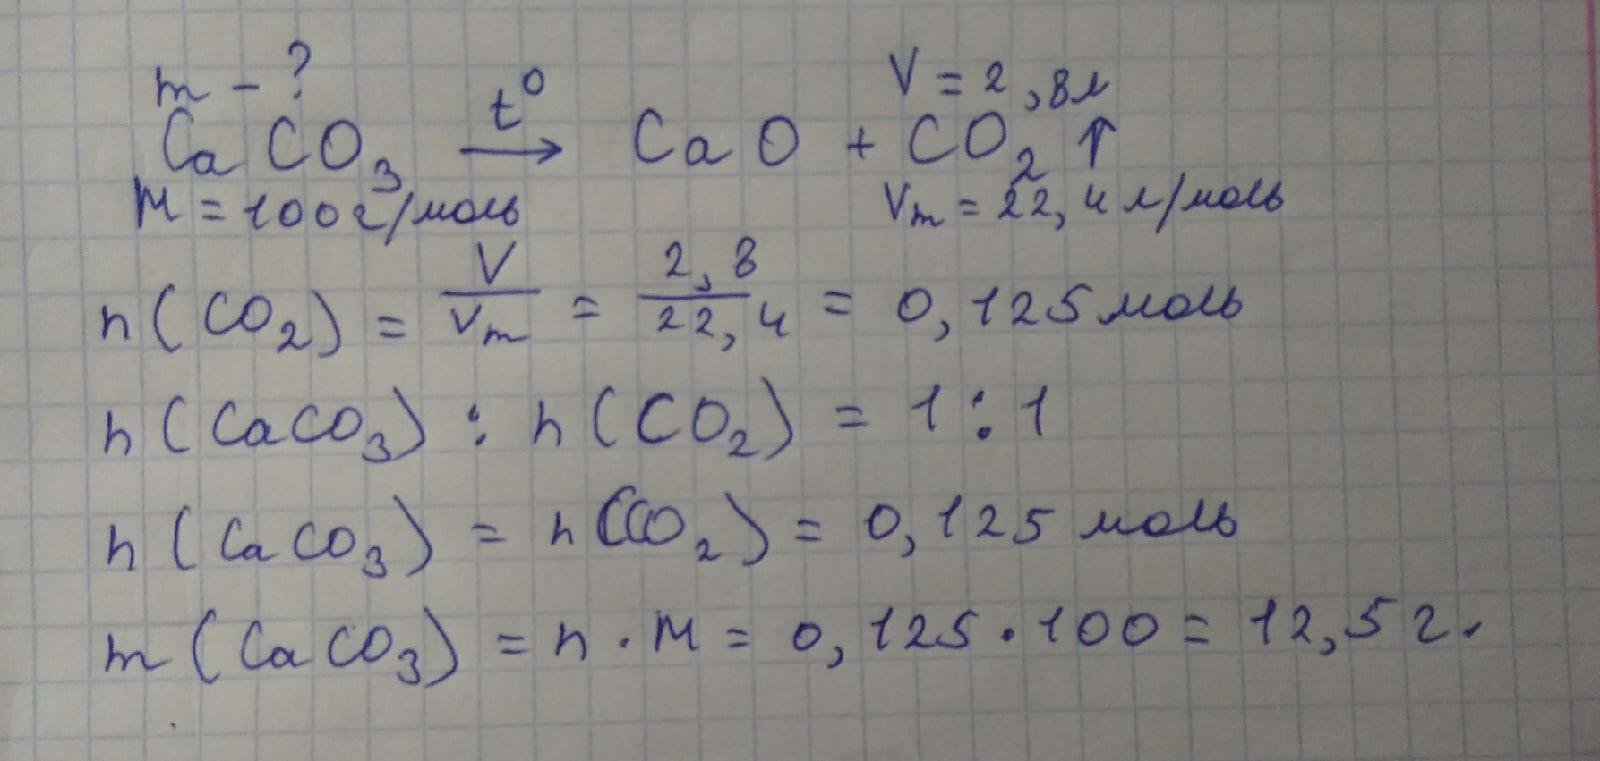 m - ?
V = 2,8л
CaCO₃ →(t⁰) CaO + CO₂ ↑
M = 100г/моль
Vm = 22,4 л/моль
n(CO₂) = V/Vm = 2,8/22,4 = 0,125 моль
n(CaCO₃) : n(CO₂) = 1 : 1
n(CaCO₃) = n(CO₂) = 0,125 моль
m(CaCO₃) = n · M = 0,125 · 100 = 12,5 г.